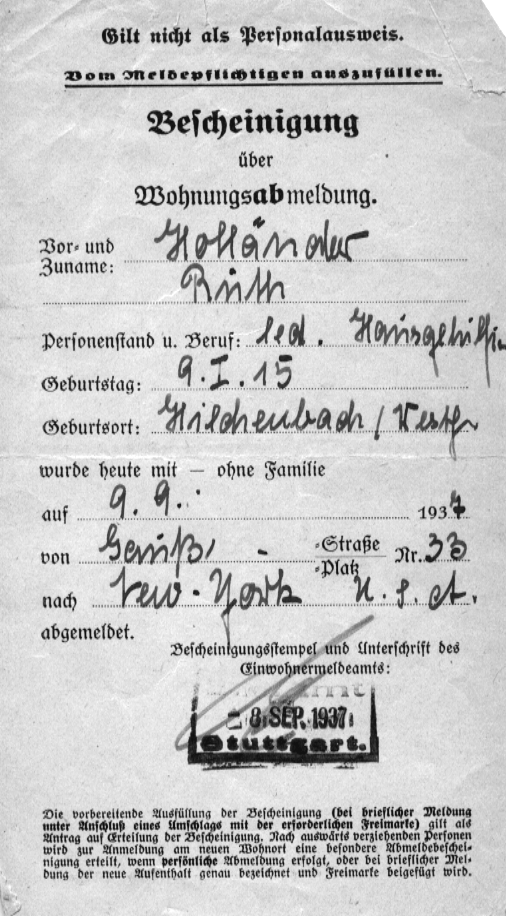 Gilt nicht als Personalausweis.
Vom Meldepflichtigen auszufüllen.
Bescheinigung
über
Wohnungsabmeldung.
Vor- und Zuname: Holländer
Ruth
Personenstand u. Beruf: led. Hausgehilfin
Geburtstag: 9.I.15
Geburtsort: Hilchenbach / Westf
wurde heute mit — ohne Familie
auf 9. 9. 1937
von -Straße -Platz Nr. 33
nach New-York U.S.A.
abgemeldet.
Bescheinigungsstempel und Unterschrift des
Einwohnermeldeamts:
8. SEP. 1937
Stuttgart.
Die vorbereitende Ausfüllung der Bescheinigung (bei brieflicher Meldung
unter Anschluß eines Umschlags mit der erforderlichen Freimarke) gilt als
Antrag auf Erteilung der Bescheinigung. Nach auswärts verziehenden Personen
wird zur Anmeldung am neuen Wohnort eine besondere Abmeldebeschei-
nigung erteilt, wenn persönliche Abmeldung erfolgt, oder bei brieflicher Mel-
dung der neue Aufenthalt genau bezeichnet und Freimarke beigefügt wird.